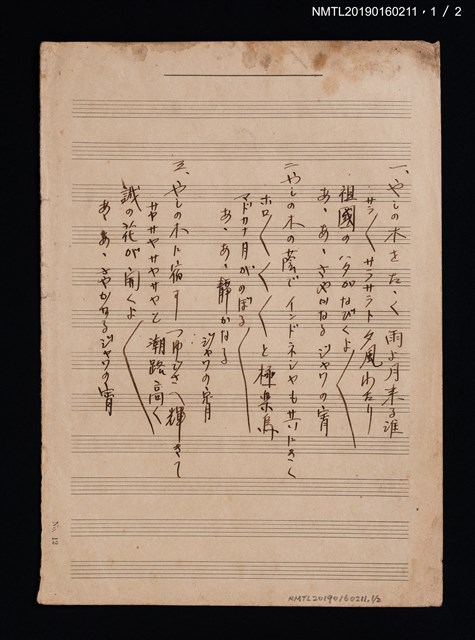 NMTL20190160211，1／2
一、やしの木をたゝく 雨よ月来る誰
サラ〱 サラサラト 夕風わたり
祖國の ハタがなびくよ
あゝあゝ さやかなる ジャワの宵
二 やしの木の蔭で インドネシヤも共にきく
ホロ〱 〱 〱 と 極楽鳥
マドカナ月がのぼる
あゝあゝ 静かなる
ジャワの宵月
三、やしの木に宿す つゆさへ輝きて
サヤサヤサヤサヤと 潮路高く
誠の花が開くよ
あゝあゝ さやかなるジャワの宵
No. 12
NMTL20190160211.1/2